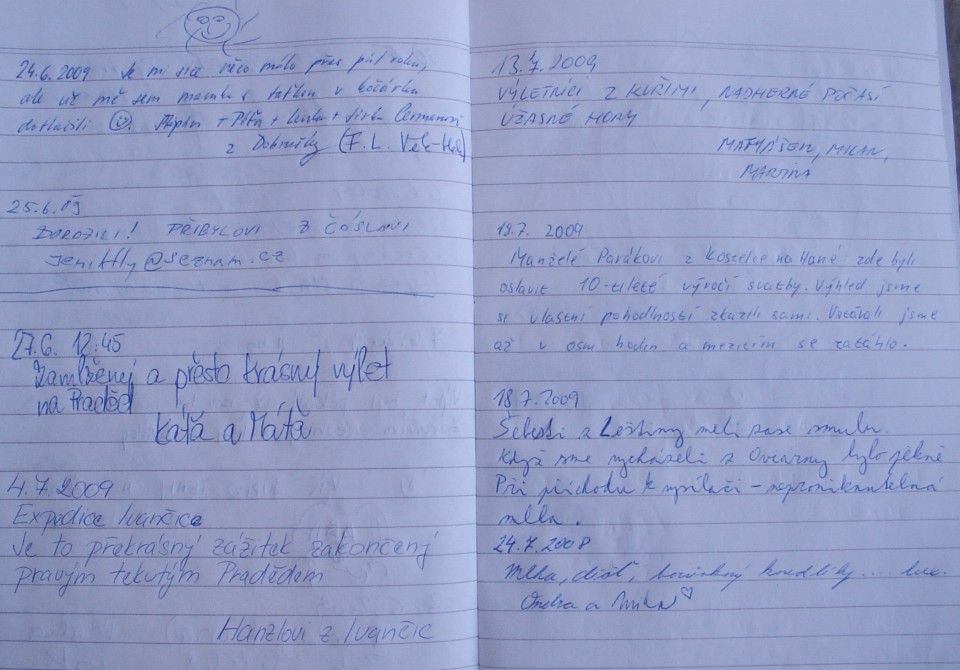 24.6.2009 Je mi sice něco málo přes půl roku,
ale už mě sem mamka s taťkou v kočárku
dotlačili
z Dobrušky (F. L. Věk
25.6.09
DORAZILI! PŘIBYLOVI Z ČÁSLAVI
jenikfly@seznam.cz
27.6. 12:45
Zamlženej a přesto krásný výlet
na Praděd
Káťa a Máťa
4.7.2009
Expedice Ivančice
Je to překrásný zážitek zakončený
pravým tekutým Pradědem
Hanzlovi z Ivančic
13.7.2009
VÝLETNÍCI Z KUŘIMI, NÁDHERNÉ POČASÍ
ÚŽASNÉ HORY
MILAN,
MARTINA
18.7. 2009
Manželé Parákovi z Kostelce na Hané zde byli
oslavit 10-tileté výročí svatby. Výhled jsme
si vlastní pohodlností zkazili sami. Vstávali jsme
až v osm hodin a mezitím se zatáhlo.
18.7.2009
Šebesti z Leštiny meli zase smulu.
Když sme vycházeli z Ovčárny bylo pěkně
Při příchodu k vysílači – neproniknutelná
mlha.
24.7.2008
Mlha, déšť, borůvkový knedlíky...
Ondra a